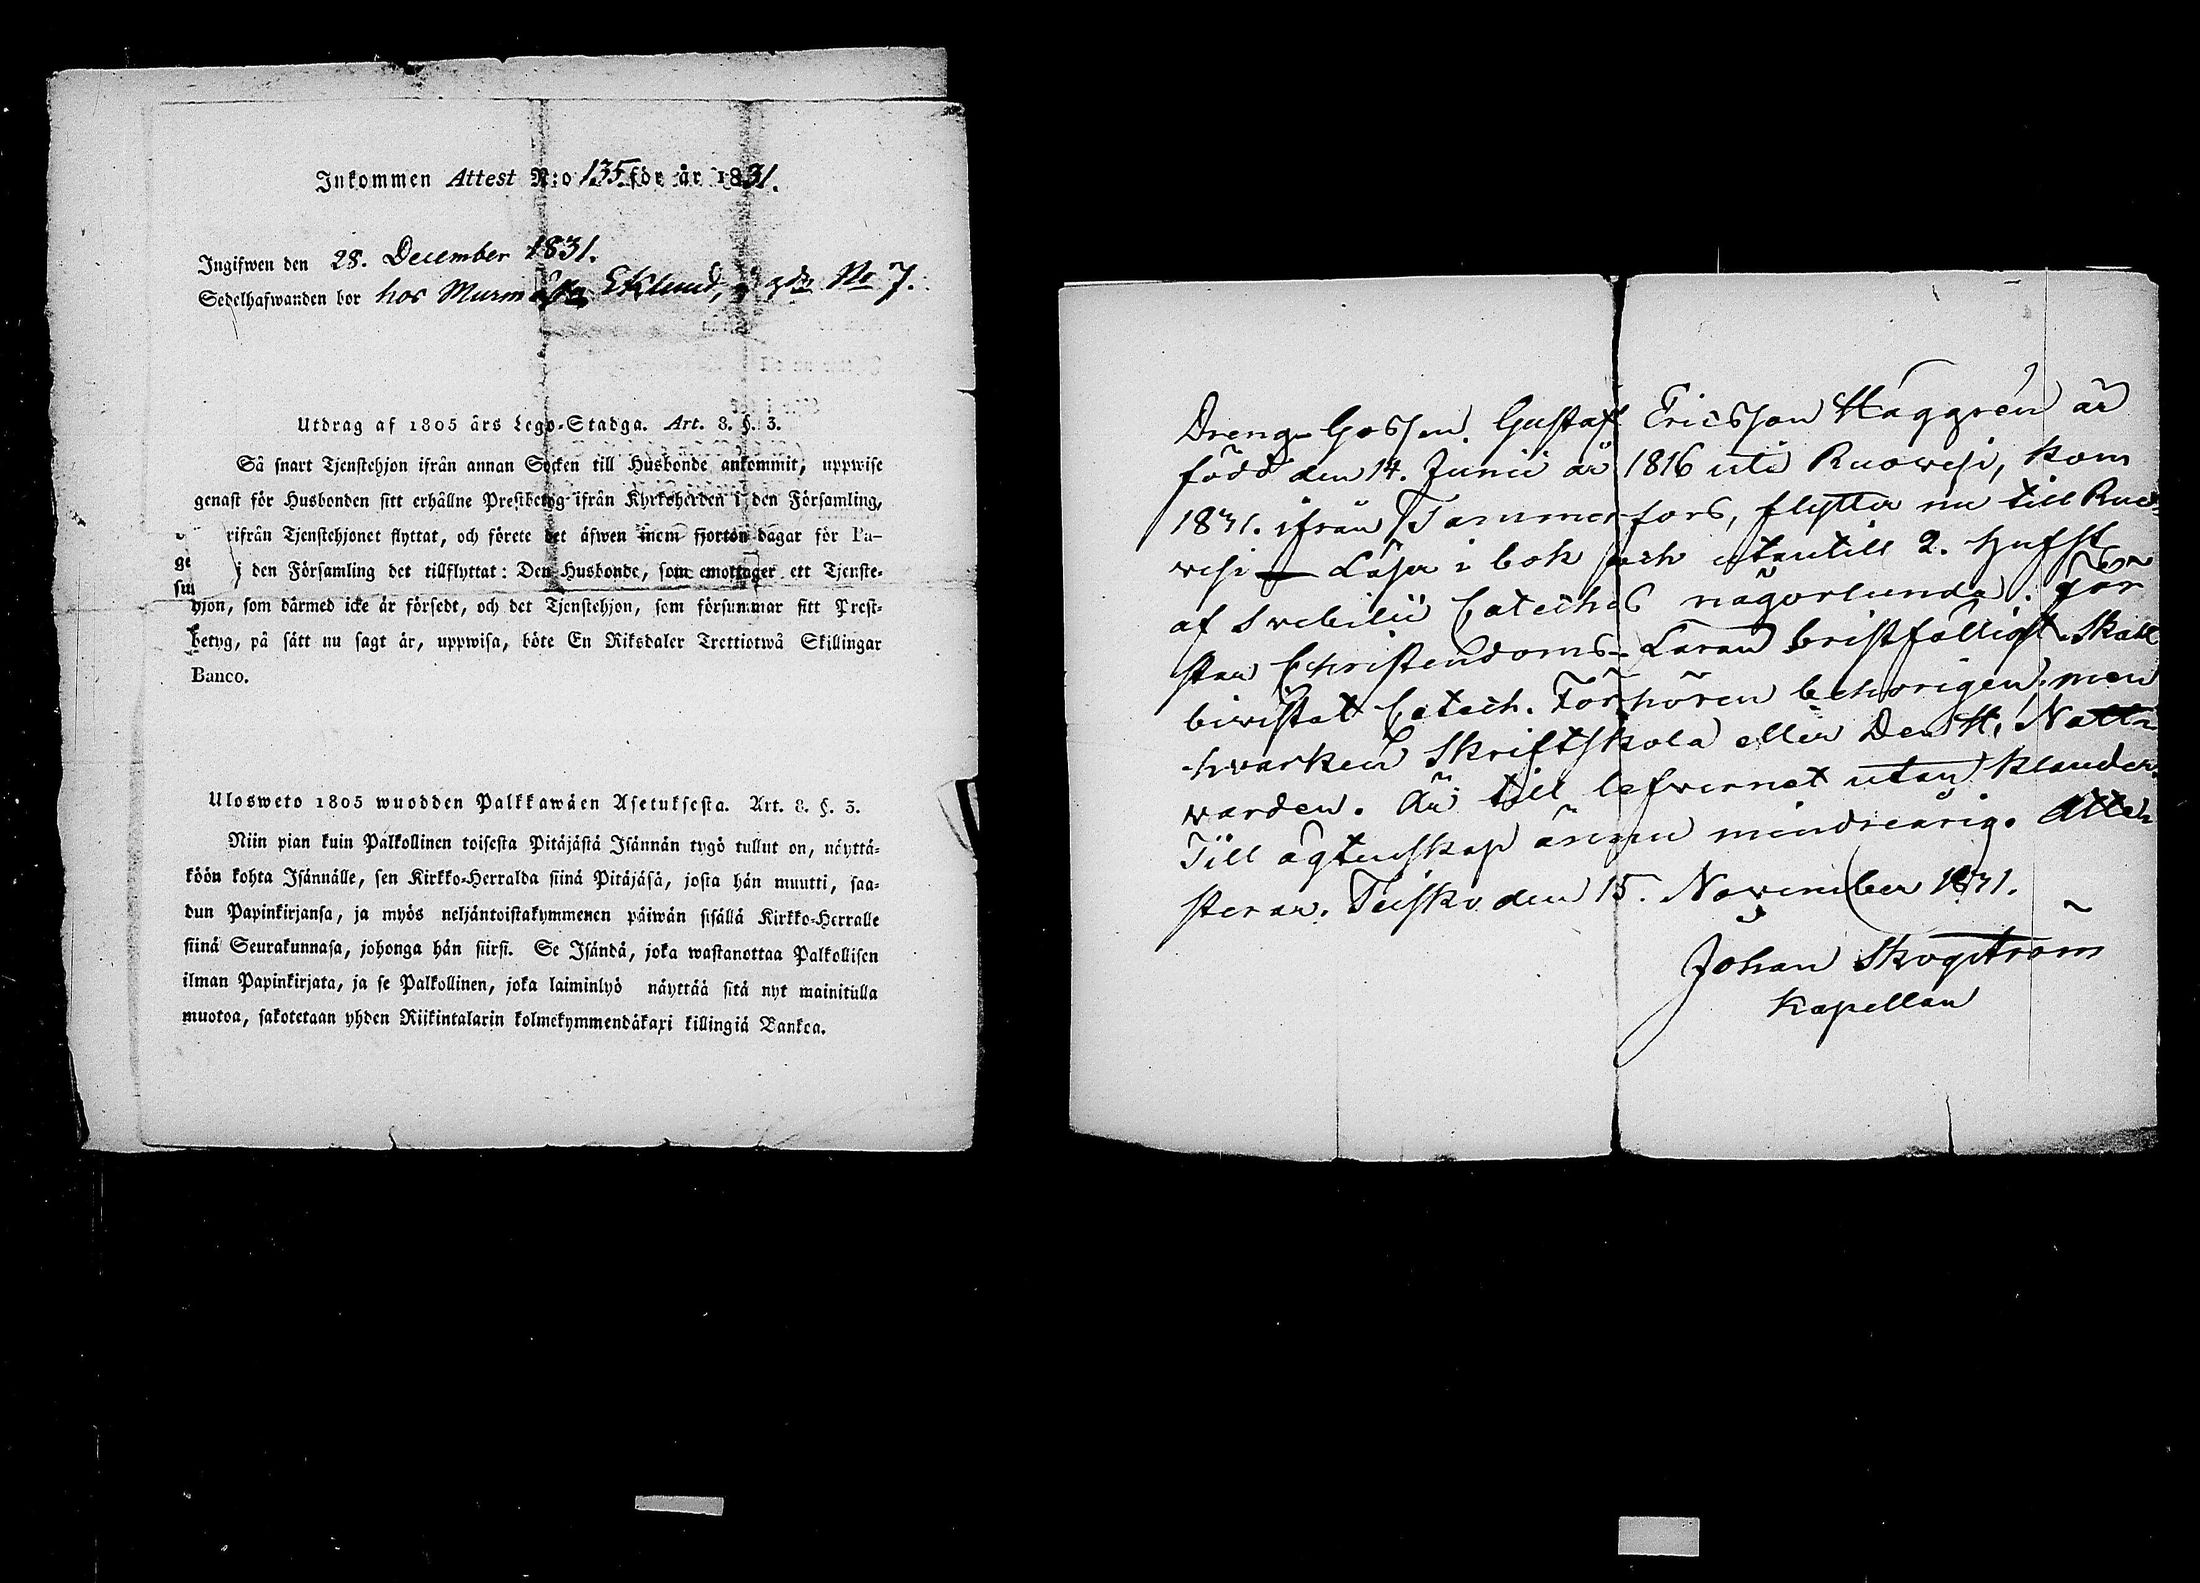 Inkommen Attest N:o 135 för år 1831.
Ingifwen den 28. December 1831.
Sedelhafwanden bor hos Murm Eklund, gdn No 7.
Utdrag af 1805 års Lego-Stadga. Art. 8. §. 3.
Så snart Tjenstehjon ifrån annan Socken till Husbonde ankommit, uppwise
genast för Husbonden sitt erhållne Prestbetyg ifrån Kyrkoherden i den Församling,
rifrån Tjenstehjonet flyttat, och förete det äfwen inom fjorton dagar för Pa-
ge i den Församling det tillflyttat: Den Husbonde, som emottager ett Tjenste-
hjon, som därmed icke är försedt, och det Tjenstehjon, som försummar sitt Prest-
betyg, på sätt nu sagt är, uppwisa, böte En Riksdaler Trettiotwå Skillingar
Banco.
Ulosweto 1805 wuodden Palkkawäen Asetuksesta. Art. 8. §. 3.
Niin pian kuin Palkollinen toisesta Pitäjästä Isännän tygö tullut on, näyttä-
köön kohta Isännälle, sen Kirkko-Herralda siinä Pitäjäsä, josta hän muutti, saa-
dun Papinkirjansa, ja myös neljäntoistakymmenen päiwän sisällä Kirkko-Herralle
siinä Seurakunnasa, johonga hän siirsi. Se Isändä, joka wastanottaa Palkollisen
ilman Papinkirjata, ja se Palkollinen, joka laiminlyö näyttää sitä nyt mainitulla
muotoa, sakotetaan yhden Riikintalarin kolmekymmendäkaxi killingiä Bankca.
Dreng-Gossen Gustaf Ericsson Häggrén är
född den 14. Junii år 1816 uti Ruowesi, kom
1831. ifrån Tammerfors, flyttar nu till Ruo-
wesi — Läser i bok och utantill 2. Hufst.
af Svebilii Cateches någorlunda. För
står Christendoms-Läran bristfälligt. Skall
biwistat Catech. Förhören behörigen, men
hvarken Skriftskola eller Den H. Natt-
warden. Är till lefwernet utan klander.
Till ägtenskap ännu minderårig. Atte-
sterar. Teisko den 15. November 1831.
Johan Skogström
Kapellan